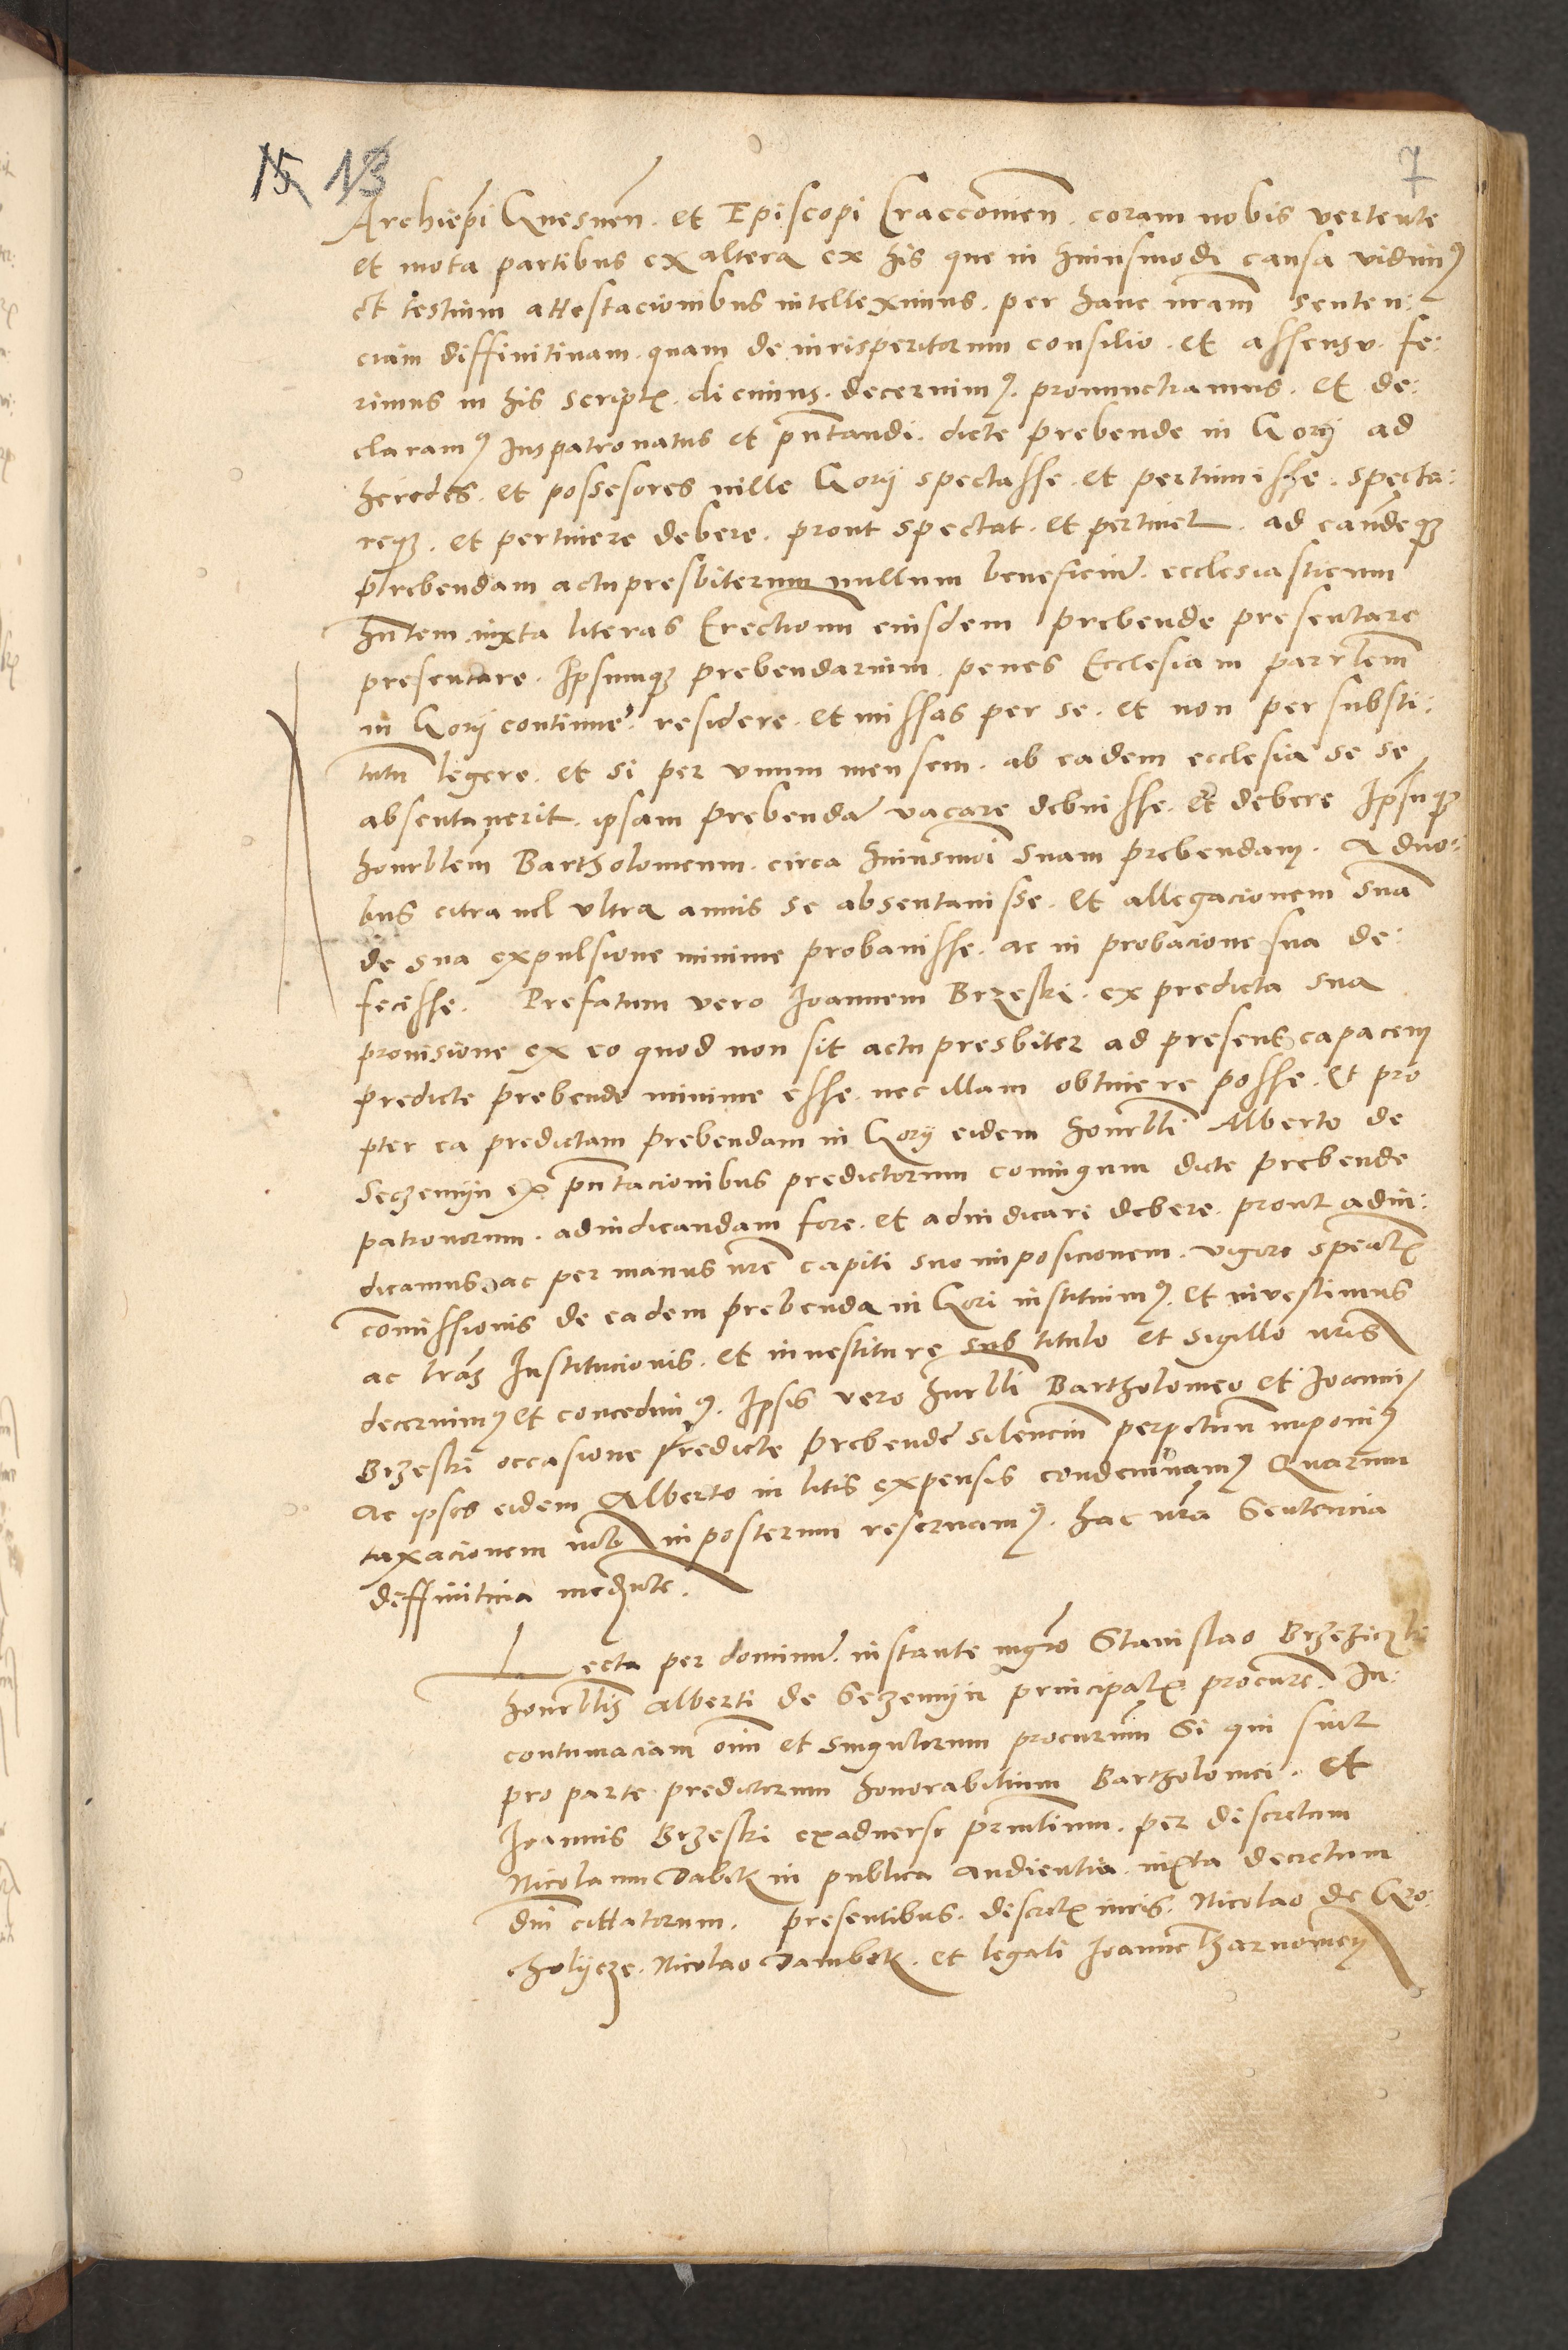 15 13
7
Archiepi Gnesnen. et Episcopi Craccovien. coram nobis vertente
et mota partibus ex altera ex his que in huiusmodi causa vidimus
et testium attestacionibus intelleximus. per hanc nram senten:
ciam diffinitivam. quam de iurisperitorum consilio. et assensu. fe:
rimus in his scriptis. dicimus. decernimus. pronunctiamus. et de:
claramus Juspatronatus et pntandi. dicte prebende in Gory ad
heredes. et possesores ville Gory spectasse. et pertinuisse. specta:
reque. et pertinere debere. prout spectat. et pertinet. ad eandeque
prebendam actu presbiterum nullum beneficium. ecclesiasticum
hntem. iuxta literas Erectionum eiusdem prebende presentare
presentare. Ipsumque prebendarium penes Ecclesiam parrlem
in Gory continue. residere. et missas per se. et non per substi:
tutu legere. et si per unum mensem. ab eadem ecclesia se se
absentaverit. ipsam prebenda vacare debuisse. et debere Ipsuque
honrblem Bartholomeum. circa huiusmoi suam prebendam. a duo:
bus citra vel ultra annis se absentavisse. et allegacionem sua
de sua expulsione minime probavisse. ac in probacione sua de:
fecisse. Prefatum vero Joannem Brzeski. ex predicta sua
provisione ex eo quod non sit actu presbiter ad presens capacem
predicte prebende minime esse. nec illam obtinere posse. et pro
pter ea predictam prebendam in Gory eidem honrbli Alberto de
Seczemyn ex pntacionibus predictorum coniugum dicte prebende
patronorum. adiudicandam fore. et adiudicari debere. prout adiu:
dicamus ac per manus nre capiti suo imposicionem. vigore spealis
comissionis de eadem prebenda in Gori instituimus. et investimus
ac lras Institucionis. et investiture sub titulo et sigillo nris
decernimus et concedimus. Ipsis vero hnrbli Bartholomeo et Joanni
Brzeski occasione predicte prebende silencium perpetuum imponimus
Ac ipsos eidem Alberto in litis expensis condemnamus Quarum
taxacionem nob in posterum reservamus. hac nra Sentencia
deffinitiva mediante.
Lecta per dominum. instante mgro Stanislao Brzeziczki
honrblis Alberti de Seczemyn principalis procure. In
contumaciam oim et singulorum procurum Si qui sint
pro parte predictorum honorabilium Bartholomei. et
Joannis Brzeski exadverse principalium. per discretum
Nicolaum Dabek in publica audientia iuxta decretum
dni cittatorum. presentibus. discretis viris. Nicolao de Gro:
cholycze. Nicolao Dambek. et legali Joanne Tharnowcy